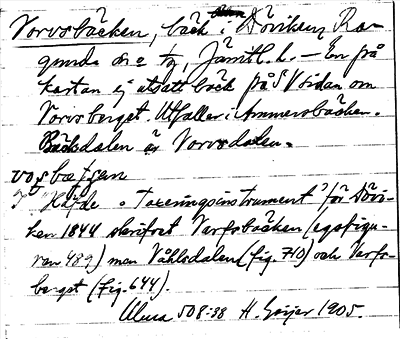 Vorvsbäcken, bäck i Dövikens Ra-
gunda sn o tg, Jämtl. l. – En på
kartan ej utsatt bäck på S sidan om
Vorvsberget. Utfaller i Ammersbäcken.
Bäckdalen är Vorvsdalen.
I "Häfde o Taxeringsinstrument" för Dövi-
ken 1844 skrifvet Varfsbäcken (egofigu-
ren 489) men Våhlsdalen (fig. 710) och Varfs-
berget (fig. 644).
508:38 H. Geijer 1905.